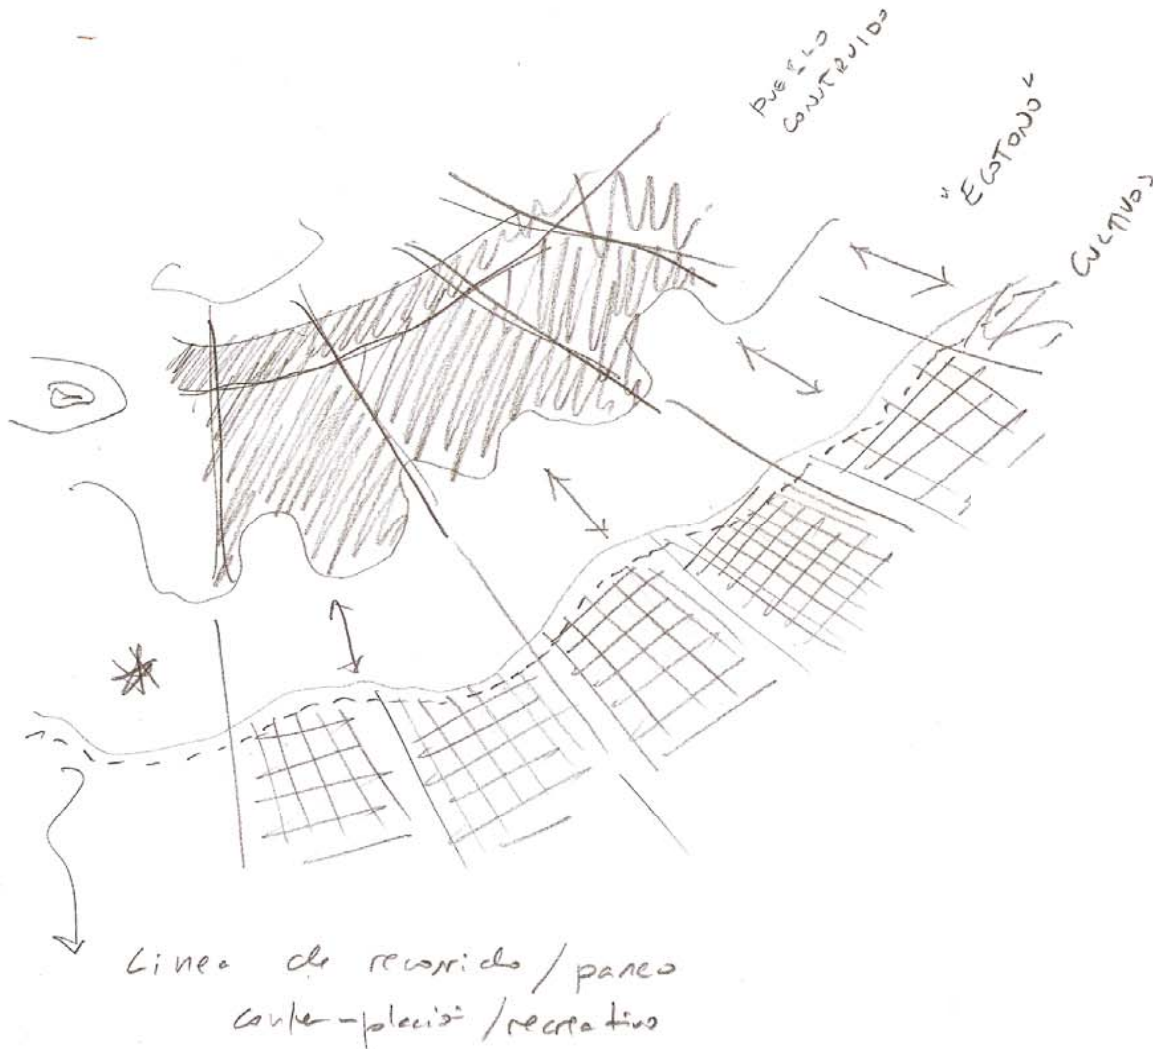 PUEBLO
CONSTRUIDO
"ECOTONO"
CULTIVOS
Linea de recorrido / paseo
contemplación / recreativo